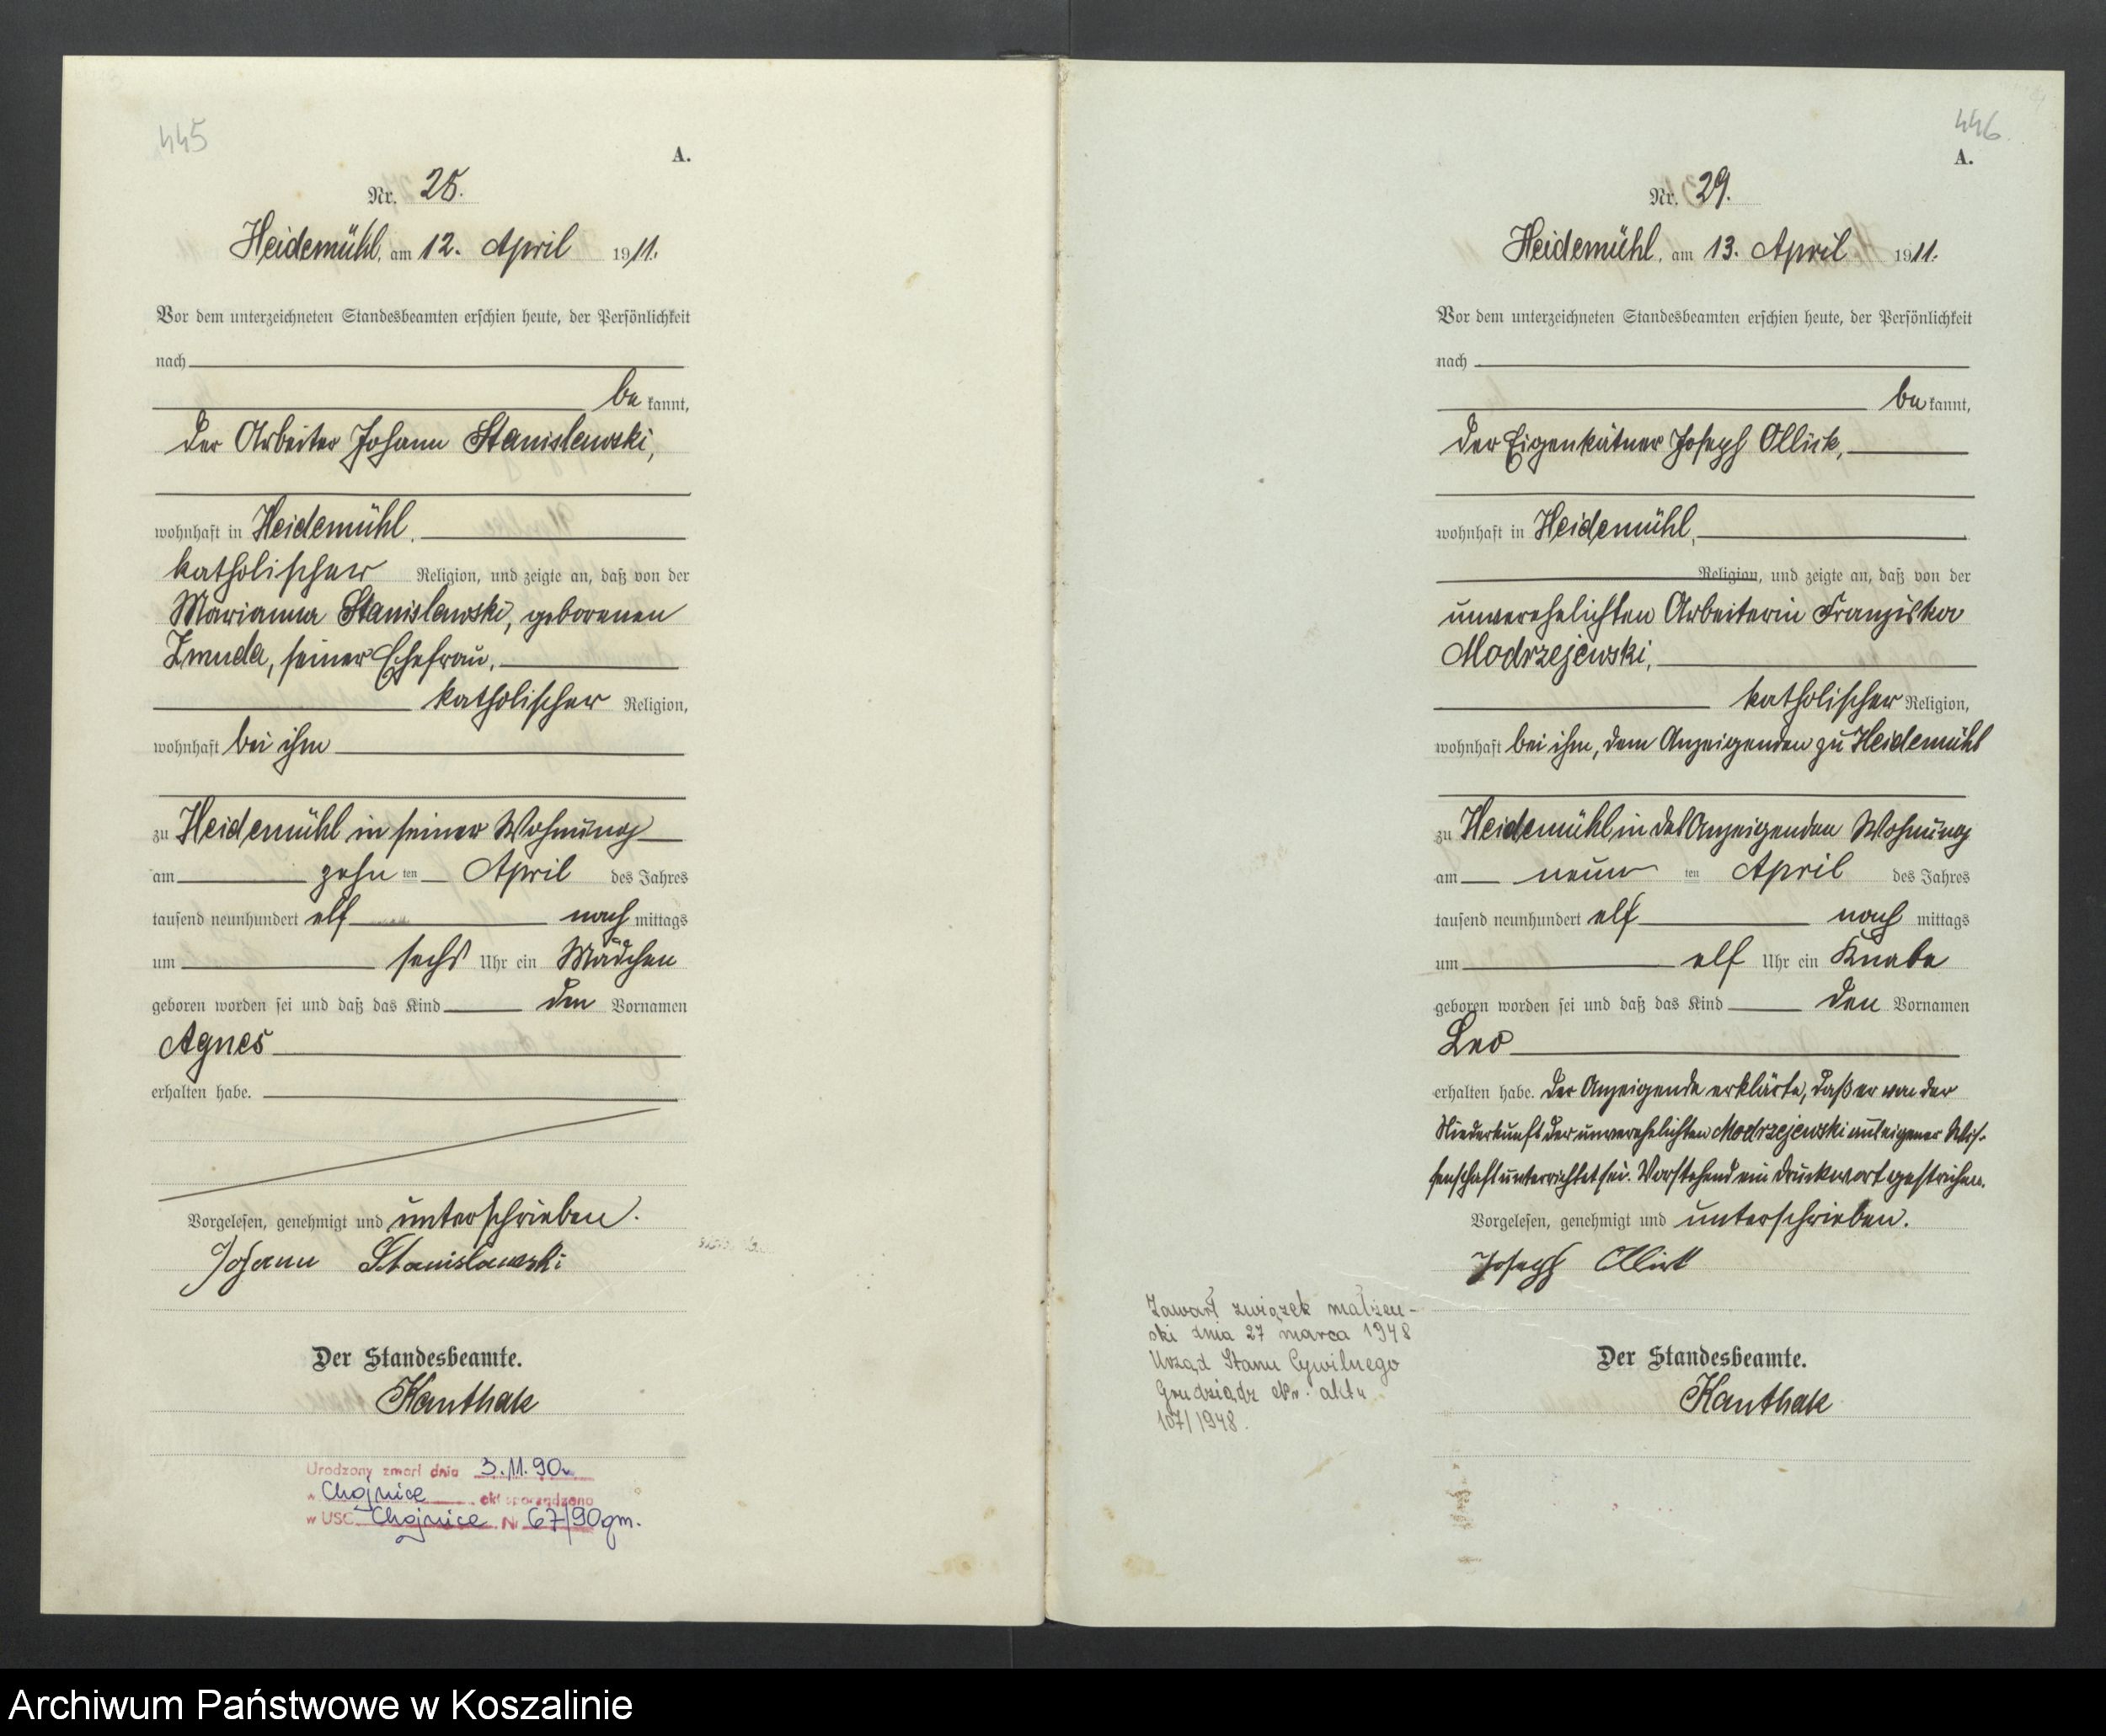 445
A.
Nr. 28.
Heidemühl, am 12. April 1911.
Vor dem unterzeichneten Standesbeamten erschien heute, der Persönlichkeit
nach
be kannt,
der Arbeiter Johann Stanislawski,
wohnhaft in Heidemühl,
katholischer Religion, und zeigte an, daß von der
Marianna Stanislawski, geborenen
Zmuda, seiner Ehefrau,
katholischer Religion,
wohnhaft bei ihm
zu Heidemühl in seiner Wohnung
am zehn ten April des Jahres
tausend neunhundert elf nach mittags
um sechs Uhr ein Mädchen
geboren worden sei und daß das Kind den Vornamen
Agnes
erhalten habe.
Vorgelesen, genehmigt und unterschrieben.
Johann Stanislawski
Der Standesbeamte.
Kanthak
Urodzony zmarł dnia 3.11.90r.
w Chojnice akt sporządzono
w USC Chojnice Nr 67/90gm.
446
A.
Nr. 29.
Heidemühl, am 13. April 1911.
Vor dem unterzeichneten Standesbeamten erschien heute, der Persönlichkeit
nach
be kannt,
der Eigenkätner Joseph Ollick,
wohnhaft in Heidemühl,
Religion, und zeigte an, daß von der
unverehelichten Arbeiterin Franziska
Modrzejewski,
katholischer Religion,
wohnhaft bei ihm, dem Anzeigenden zu Heidemühl
zu Heidemühl in des Anzeigenden Wohnung
am neun ten April des Jahres
tausend neunhundert elf nach mittags
um elf Uhr ein Knabe
geboren worden sei und daß das Kind den Vornamen
Leo
erhalten habe. Der Anzeigende erklärte, daß er von der
Niederkunft der unverehelichten Modrzejewski aus eigener Wis-
senschaft unterrichtet sei. Vorstehend ein Druckwort gestrichen.
Vorgelesen, genehmigt und unterschrieben.
Joseph Ollick
Zawarł związek małżeń-
ski dnia 27 marca 1948
Urząd Stanu Cywilnego
Grudziądz Nr. aktu
107/1948.
Der Standesbeamte.
Kanthak
Archiwum Państwowe w Koszalinie